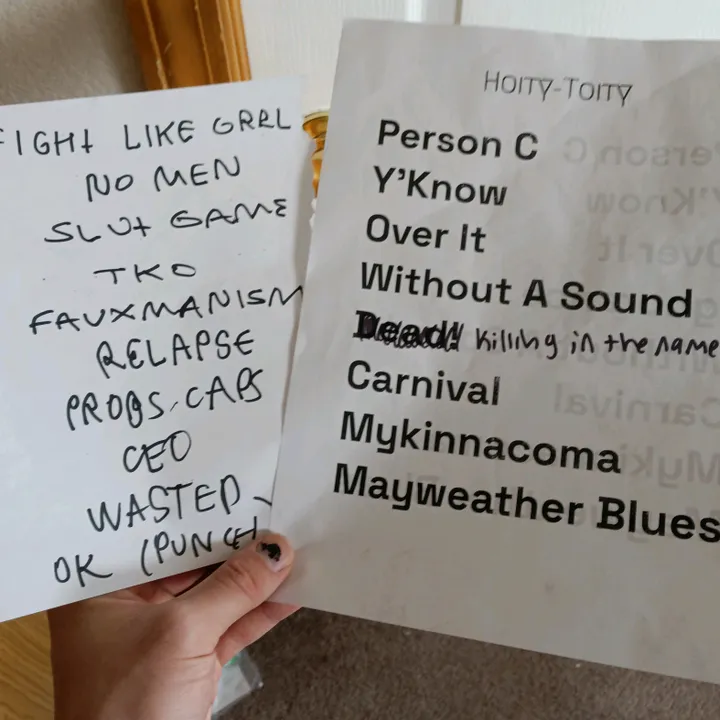 FIGHT LIKE GRRL
NO MEN
SLUT GAME
TKO
FAUXMANISM
RELAPSE
PROBS. CAPS
CEO
WASTED
OK (PUNCH
HOITY-TOITY
Person C
Y'Know
Over It
Without A Sound
Dead! killing in the name
Carnival
Mykinnacoma
Mayweather Blues